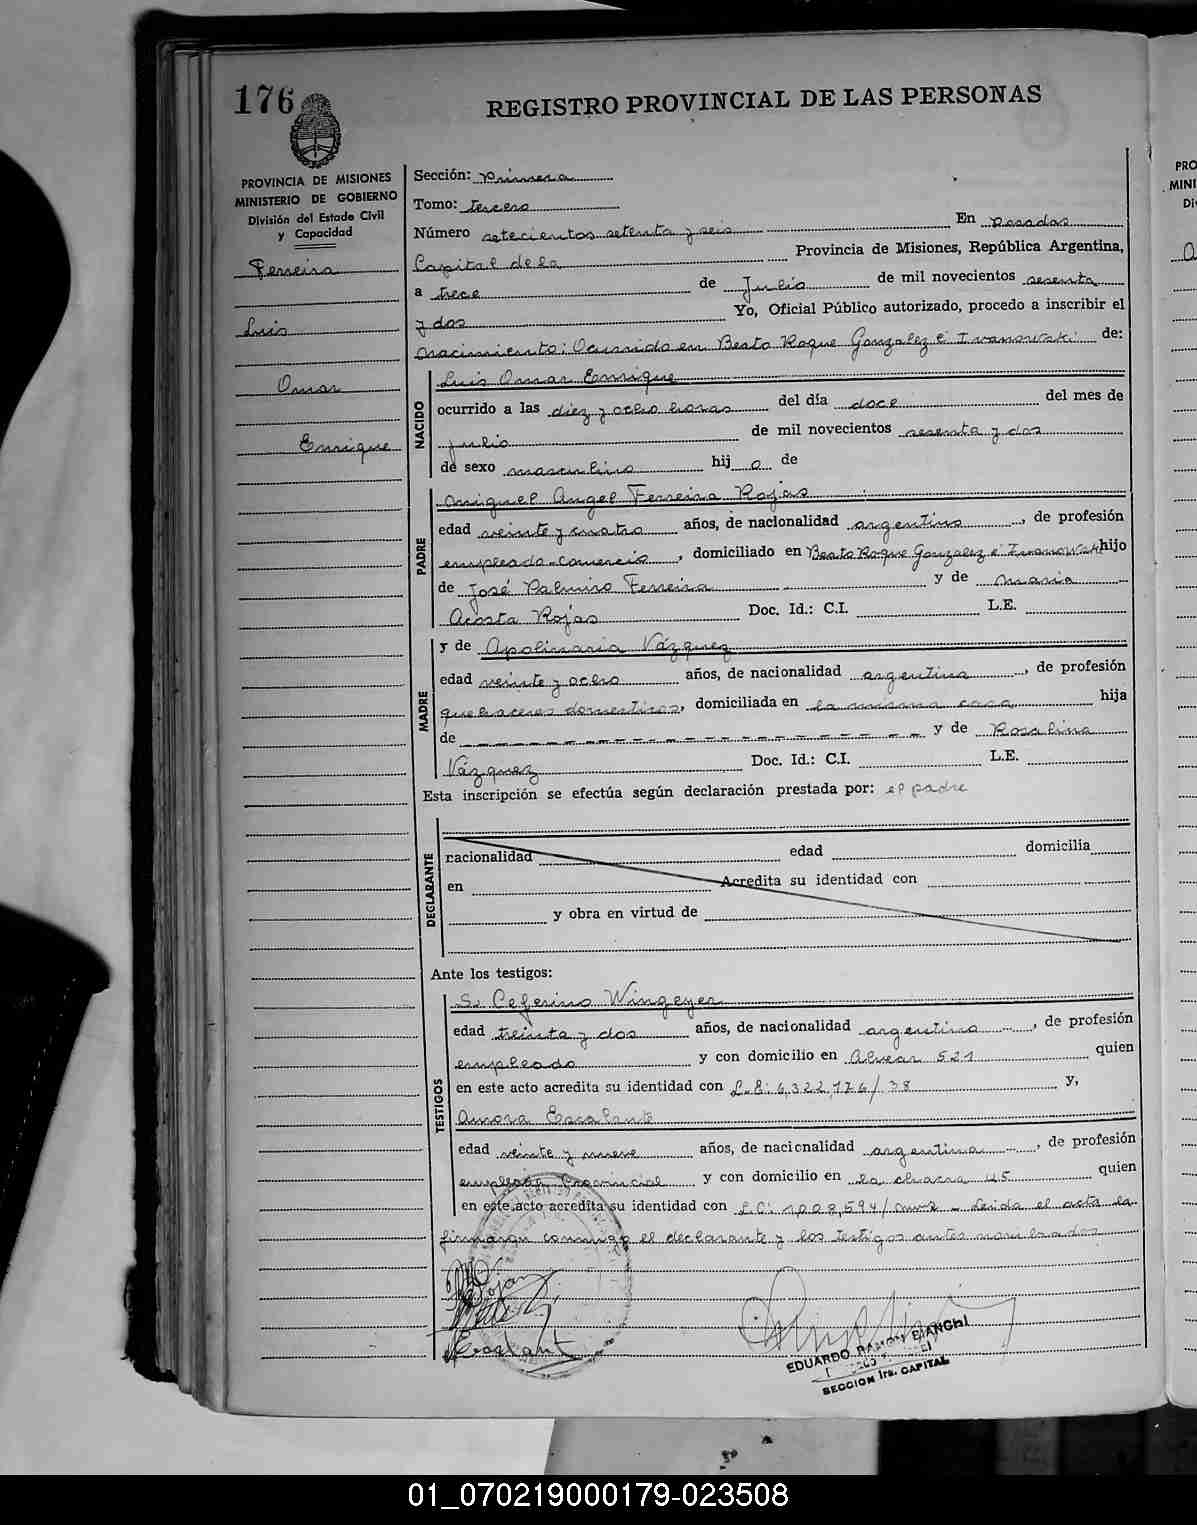 176
REGISTRO PROVINCIAL DE LAS PERSONAS
PROVINCIA DE MISIONES
MINISTERIO DE GOBIERNO
División del Estado Civil
y Capacidad
Ferreira
Luis
Omar
Enrique
Sección: Primera
Tomo: tercero
Número setecientos setenta y seis En Posadas
Capital de la Provincia de Misiones, República Argentina,
a trece de Julio de mil novecientos sesenta
y dos Yo, Oficial Público autorizado, procedo a inscribir el
nacimiento: Ocurrido en Beato Roque Gonzalez é Ivanowski de:
NACIDO
Luis Omar Enrique
ocurrido a las diez y ocho horas del día doce del mes de
julio de mil novecientos sesenta y dos
de sexo masculino hij o de
PADRE
Miguel Angel Ferreira Rojas
edad veinte y cuatro años, de nacionalidad argentino, de profesión
empleado-comercio, domiciliado en Beato Roque Gonzalez é Ivanowski hijo
de José Palmiro Ferreira y de Maria
Acosta Rojas Doc. Id.: C.I. L.E.
MADRE
y de Apolinaria Vázquez
edad veinte y ocho años, de nacionalidad argentina, de profesión
quehaceres domesticos, domiciliada en la misma casa hija
de y de Rosalina
Vázquez Doc. Id.: C.I. L.E.
Esta inscripción se efectúa según declaración prestada por: el padre
DECLARANTE
nacionalidad edad domicilia
en Acredita su identidad con
y obra en virtud de
Ante los testigos:
TESTIGOS
S. Ceferino Wingeyer
edad treinta y dos años, de nacionalidad argentino, de profesión
empleado y con domicilio en Alvear 521 quien
en este acto acredita su identidad con L.E: 4,322,174/38 y,
Amora Escalante
edad veinte y nueve años, de nacionalidad argentina, de profesión
empleada Provincial y con domicilio en la chacra 45 quien
en este acto acredita su identidad con L.C: 1,008,594/ - Leida el acta la
firmaron conmigo el declarante y los testigos antes nombrados
Rojas
Escalante
EDUARDO RAMON BIANCHI
SECCION 1ra. CAPITAL
PRO
MINI
Di
01_070219000179-023508